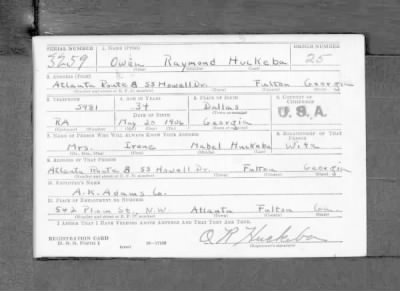 SERIAL NUMBER 1. NAME (Print) ORDER NUMBER
3259 Owen Raymond Huckeba 25
(First) (Middle) (Last)
2. ADDRESS (Print)
Atlanta Route 8 55 Howell Dr. Fulton Georgia
3. TELEPHONE 4. AGE IN YEARS 5. PLACE OF BIRTH 6. COUNTRY OF CITIZENSHIP
5981 34 Dallas
DATE OF BIRTH
RA May 20 1906 Georgia U.S.A.
7. NAME OF PERSON WHO WILL ALWAYS KNOW YOUR ADDRESS 8. RELATIONSHIP OF THAT PERSON
Mrs. Irene Mabel Huckeba Wife
9. ADDRESS OF THAT PERSON
Atlanta Route 8 55 Howell Dr. Fulton Georgia
10. EMPLOYER'S NAME
A.K. Adams Co.
11. PLACE OF EMPLOYMENT OR BUSINESS
542 Plum St., N.W. Atlanta Fulton Ga.
I AFFIRM THAT I HAVE VERIFIED ABOVE ANSWERS AND THAT THEY ARE TRUE.
REGISTRATION CARD
D. S. S. Form 1 O R Huckeba
(Registrant's signature)